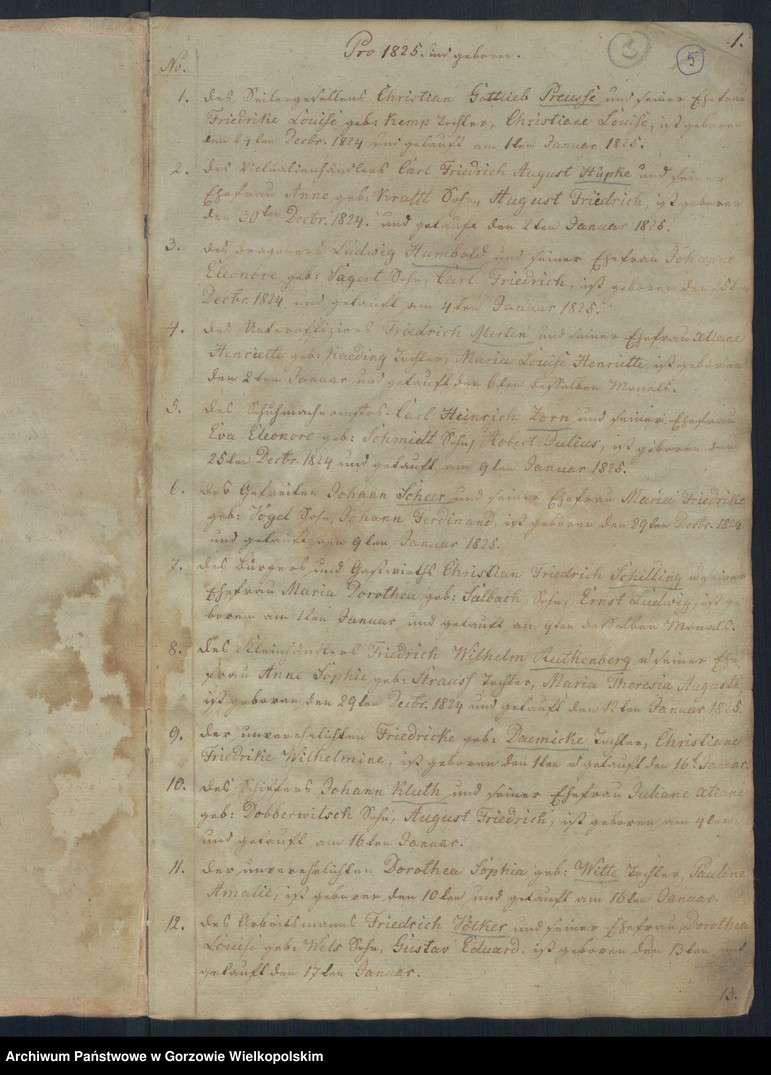 Pro 1825. sind geboren.
3
5
1.
No.
1. des Seilergesellens Christian Gottlieb Preusse und seiner Ehefrau
Friedrike Louise geb: Kemp Tochter, Christiane Louise, ist geboren
den 24ten Decbr. 1824 und getauft am 1ten Januar 1825.
2. des Victualienhändlers Carl Friedrich August Hüpke und seiner
Ehefrau Anne geb: Krafft Sohn, August Friedrich, ist geboren
den 30ten Decbr. 1824. und getauft den 2ten Januar 1825.
3. des Dragoners Ludwig Humbold und seiner Ehefrau Johanne
Eleonore geb: Sagert Sohn, Carl Friedrich, ist geboren den
Decbr. 1824 und getauft am 4ten Januar 1825.
4. des Unteroffiziers Friedrich Merten und seiner Ehefrau Xtiane
Henriette geb: Kaeding Tochter, Maria Louise Henriette, ist geboren
den 2ten Januar und getauft den 6ten desselben Monats.
5. des Schuhmachermstrs. Carl Heinrich Zorn und seiner Ehefrau
Eva Eleonore geb: Schmidt Sohn, Robert Julius, ist geboren den
25ten Decbr. 1824 und getauft am 9ten Januar 1825.
6. des Gefreiten Johann Scheer und seiner Ehefrau Maria Friedrike
geb: Vogel Sohn, Johann Ferdinand, ist geboren den 29ten Decbr. 1824
und getauft am 9ten Januar 1825.
7. des Bürgers und Gastwirths Christian Friedrich Schilling u seiner
Ehefrau Maria Dorothea geb: Salbach Sohn, Ernst Ludwig, ist ge
boren am 1ten Januar und getauft am 9ten desselben Monats.
8. des Kleinhändlers Friedrich Wilhelm Ruthenberg u seiner Ehe
frau Anne Sophie geb: Strauss Tochter, Maria Theresia Auguste,
ist geboren den 29ten Decbr. 1824 und getauft den 12ten Januar 1825.
9. der unverehelichten Friedricke geb: Daemicke Tochter, Christiane
Friedrike Wilhelmine, ist geboren den 1ten u getauft den 16t. Januar.
10. des Schiffers Johann Kluth und seiner Ehefrau Juliane Xtiane
geb: Dobberwitsch Sohn, August Friedrich, ist geboren am 4ten
und getauft am 16ten Januar.
11. der unverehelichten Dorothea Sophia geb: Witte Tochter, Pauline
Amalie, ist geboren den 10ten und getauft am 16ten Januar
12. des Arbeitsmanns Friedrich Völker und seiner Ehefrau Dorothea
Louise geb: Wels Sohn, Gustav Eduard, ist geboren den 13ten und
getauft den 17ten Januar.
13.
Archiwum Państwowe w Gorzowie Wielkopolskim